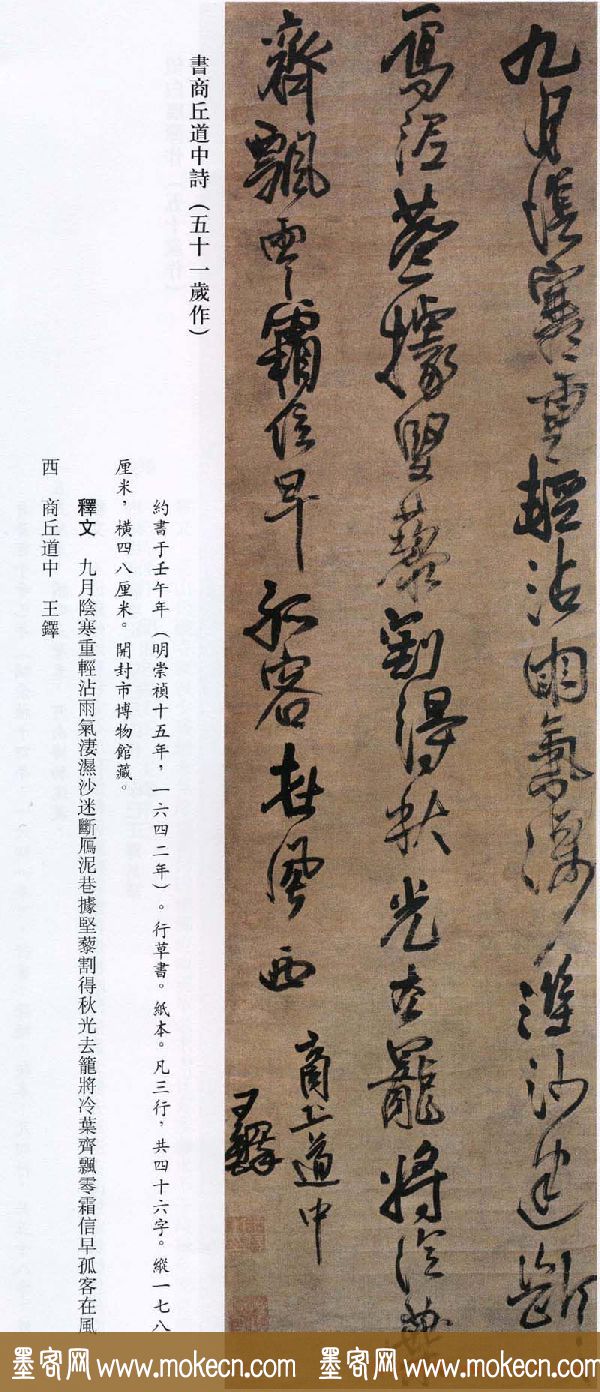 九月陰寒重輕沾雨氣淒濕沙迷斷
鴈泥巷據堅藜割得秋光去籠將冷葉
齊飄零霜信早孤客在風西
商丘道中
王鐸
書商丘道中詩（五十一歲作）
約書于壬午年（明崇禎十五年，一六四二年）。行草書。紙本。凡三行，共四十六字。縱一七八
厘米，橫四八厘米。開封市博物館藏。
釋文 九月陰寒重輕沾雨氣淒濕沙迷斷鴈泥巷據堅藜割得秋光去籠將冷葉齊飄零霜信早孤客在風
西 商丘道中 王鐸
墨客网 www.mokecn.com 墨客网 www.mokecn.com